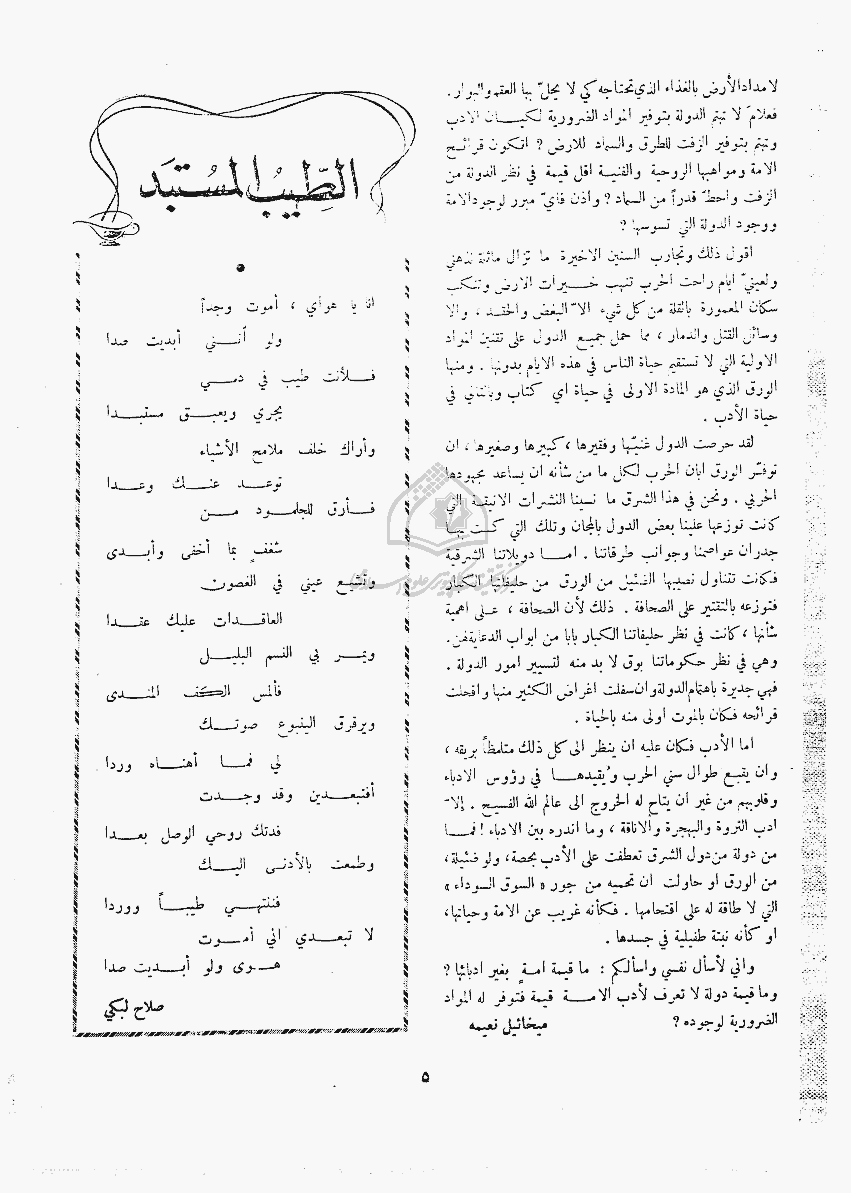 لامداد الأرض بالغذاء الذي تحتاجه كي لا يحلّ بها العقم والبوار.
فعلامَ لا تهتم الدولة بتوفير المواد الضرورية لكيــان الادب
وتهتم بتوفير الزفت للطرق والسماد للارض ? اتكون قرائــح
الامة ومواهبها الروحية والفنية اقل قيمة في نظر الدولة من
الزفت واحطّ قدراً من السماد ? واذن فايّ مبرر لوجود الامة
ووجود الدولة التي تسوسها ?
اقول ذلك وتجارب السنين الاخيرة ما تزال ماثلة لذهني
ولعينيّ ايام راحت الحرب تنهب خــيرات الارض وتنكب
سكان المعمورة بالقلة من كل شيء الاّ البغض والحقد ، والا
وسائل القتل والدمار ، مما حمل جميع الدول على تقنين المواد
الاولية التي لا تستقيم حياة الناس في هذه الايام بدونها . ومنها
الورق الذي هو المادة الاولى في حياة اي كتاب وبالتالي في
حياة الأدب .
لقد حرصت الدول غنيّها وفقيرها ، كبيرها وصغيرها ، ان
توفّر الورق ابان الحرب لكل ما من شأنه ان يساعد مجهودها
الحربي . ونحن في هذا الشرق ما نسينا النشرات الانيقة التي
كانت توزعها علينا بعض الدول بالمجان وتلك التي كست بها
جدران عواصمنا وجوانب طرقاتنا . امــا دويلاتنا الشرقية
فكانت تتناول نصيبها الضئيل من الورق من حليفاتها الكبار
فتوزعه بالتقتير على الصحافة . ذلك لأن الصحافة ، عــلى اهمية
شأنها ، كانت في نظر حليفاتنا الكبار بابا من ابواب الدعاية لهن.
وهي في نظر حكوماتنا بوق لا بد منه لتسيير امور الدولة .
فهي جديرة باهتمام الدولة وان سفلت اغراض الكثير منها واقحلت
قرائحه فكان بالموت اولى منه بالحياة .
اما الأدب فكان عليه ان ينظر الى كل ذلك متلمظاً بريقه ،
وان يقبع طوال سني الحرب وبُعيدهــا في رؤوس الادباء
وقلوبهم من غير ان يتاح له الخروج الى عالم الله الفسيح . إلاّ
ادب الثروة والبهجرة والاناقة ، وما اندره بين الادباء ! فمــا
من دولة من دول الشرق تعطفت على الأدب بحصة، ولو ضئيلة،
من الورق او حاولت ان تحميه من جور « السوق السوداء »
التي لا طاقة له على اقتحامها . فكأنه غريب عن الامة وحياتها،
او كأنه نبتة طفيلية في جسدها .
واني لأسأل نفسي واسألكم : ما قيمة امةٍ بغير ادبائها ?
وما قيمة دولة لا تعرف لأدب الامــة قيمة فتوفر له المواد
الضرورية لوجوده ?
ميخائيل نعيمه
الطِّيبُ المُسْتبَد
انا يا هواي ، أموت وجداً
ولو أنــني أبديت صدا
فــلأنت طيب في دمــي
يجري ويعبــق مستبــدا
وأراك خلف ملامح الأشياء
توعــد عنــك وعــدا
فــأرق للجلمــود مــن
شغفٍ بما أخفى وأبــدى
وتشيع عيني في الغصون
العاقــدات عليك عقــدا
ويمــر بي النسم البليــل
فألمس الكف المنــدى
ويرقرق الينبوع صوتــك
لي فمــا أهنــاه وردا
أفتبعــدين وقد وجــدت
فدتك روحي الوصل بعــدا
وطمعت بالأدنــى اليــك
فننتهــي طيبــاً ووردا
لا تبعــدي اني أمــوت
هــوى ولو أبــديت صدا
صلاح لبكي
٥